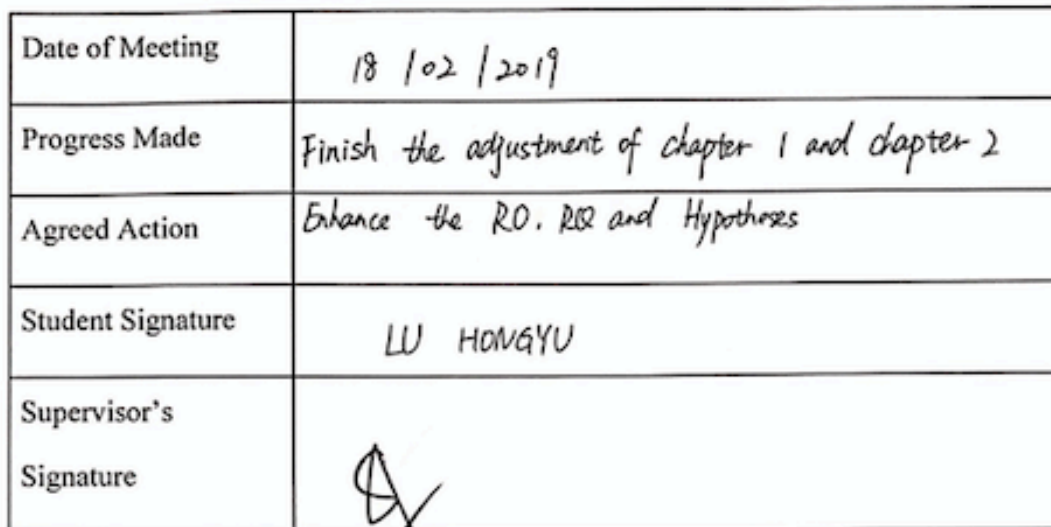 Date of Meeting
18 / 02 / 2019
Progress Made
Finish the adjustment of chapter 1 and chapter 2
Agreed Action
Enhance the RO. RQ and Hypotheses
Student Signature
LU HONGYU
Supervisor's
Signature